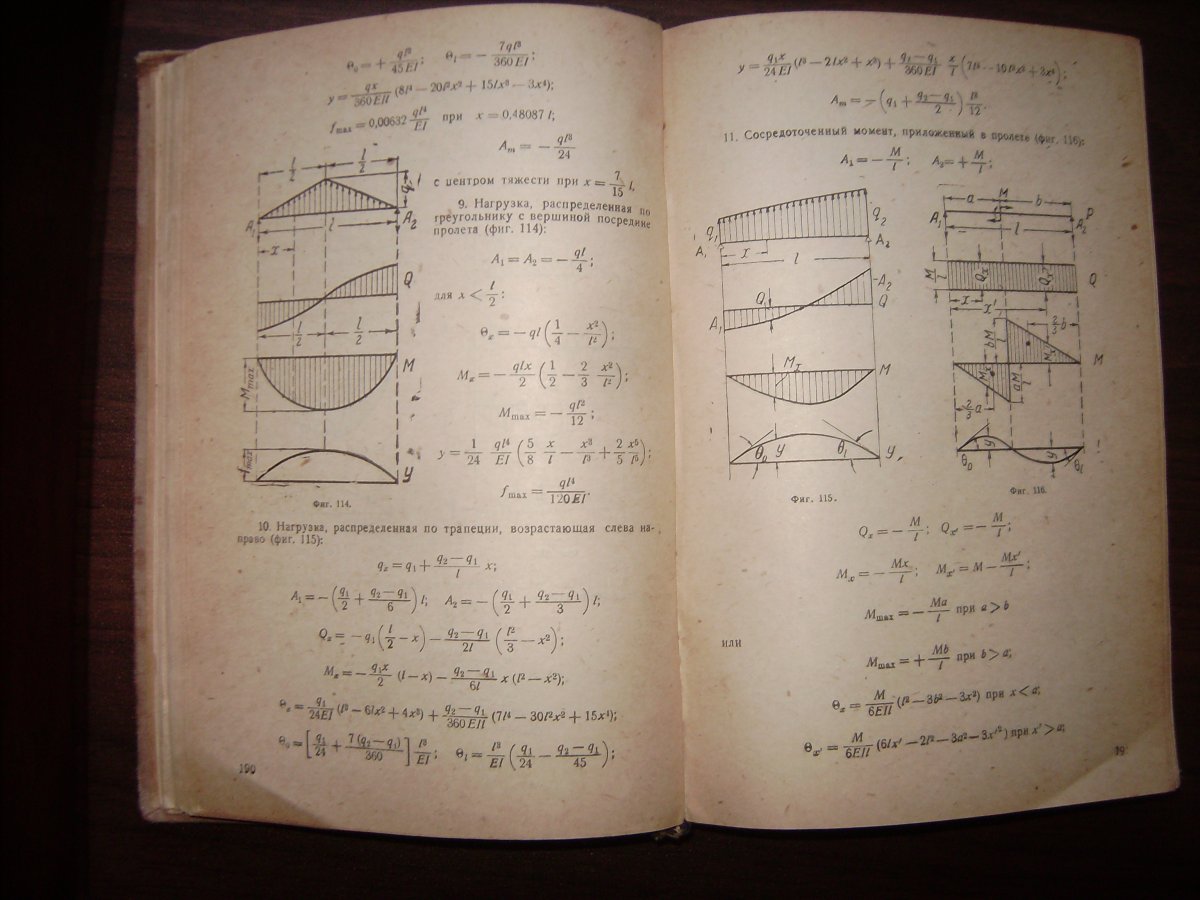 Θ₀ = + ql³/45EI; Θₗ = − 7ql³/360EI;
y = qx/360EIl (8l⁴ − 20l²x² + 15lx³ − 3x⁴);
fmax = 0,00632 ql⁴/EI при x = 0,48087 l;
Aₘ = − ql³/24
с центром тяжести при x = 7/15 l,
9. Нагрузка, распределенная по
треугольнику с вершиной посредине
пролета (фиг. 114):
A₁ = A₂ = − ql/4;
для x < l/2:
Θₓ = − ql (1/4 − x²/l²);
Mₓ = − qlx/2 (1/2 − 2/3 x²/l²);
Mmax = − ql²/12;
y = 1/24 ql⁴/EI (5/8 x/l − x³/l³ + 2/5 x⁵/l⁵);
fmax = ql⁴/120EI.
l/2 l/2
q
A₁ l A₂
x
Q
l/2 l/2
Mmax M
fmax y
Фиг. 114.
10. Нагрузка, распределенная по трапеции, возрастающая слева на-
право (фиг. 115):
qₓ = q₁ + (q₂ − q₁)/l x;
A₁ = − (q₁/2 + (q₂ − q₁)/6) l; A₂ = − (q₁/2 + (q₂ − q₁)/3) l;
Qₓ = − q₁ (l/2 − x) − (q₂ − q₁)/2l (l²/3 − x²);
Mₓ = − q₁x/2 (l − x) − (q₂ − q₁)/6l x (l² − x²);
Θₓ = q₁/24EI (l³ − 6lx² + 4x³) + (q₂ − q₁)/360EIl (7l⁴ − 30l²x² + 15x⁴);
Θ₀ = [q₁/24 + 7(q₂ − q₁)/360] l³/EI; Θₗ = l³/EI (q₁/24 − (q₂ − q₁)/45);
190
y = q₁x/24EI (l³ − 2lx² + x³) + (q₂ − q₁)/360EI x/l (7l⁴ − 10l²x² + 3x⁴);
Aₘ = − (q₁ + (q₂ − q₁)/2) l³/12.
11. Сосредоточенный момент, приложенный в пролете (фиг. 116):
A₁ = − M/l; A₂ = + M/l;
q₁ q₂
A₁ x A₂
l
Q₁ A₂ Q
A₁
Mₓ M
Θ₀ y Θₗ y
Фиг. 115.
a M b
A₁ l A₂ P
M/l Qₓ Qₓ' Q
x
x' 2/3 b
bM/l Mₓ' M
Mₓ aM/l
2/3 a
Θ₀ y y Θₗ
Фиг. 116.
Qₓ = − M/l; Qₓ' = − M/l;
Mₓ = − Mx/l; Mₓ' = M − Mx'/l;
Mmax = − Ma/l при a > b
или
Mmax = + Mb/l при b > a;
Θₓ = M/6EIl (l² − 3b² − 3x²) при x < a;
Θₓ' = M/6EIl (6lx' − 2l² − 3a² − 3x'²) при x' > a;
19